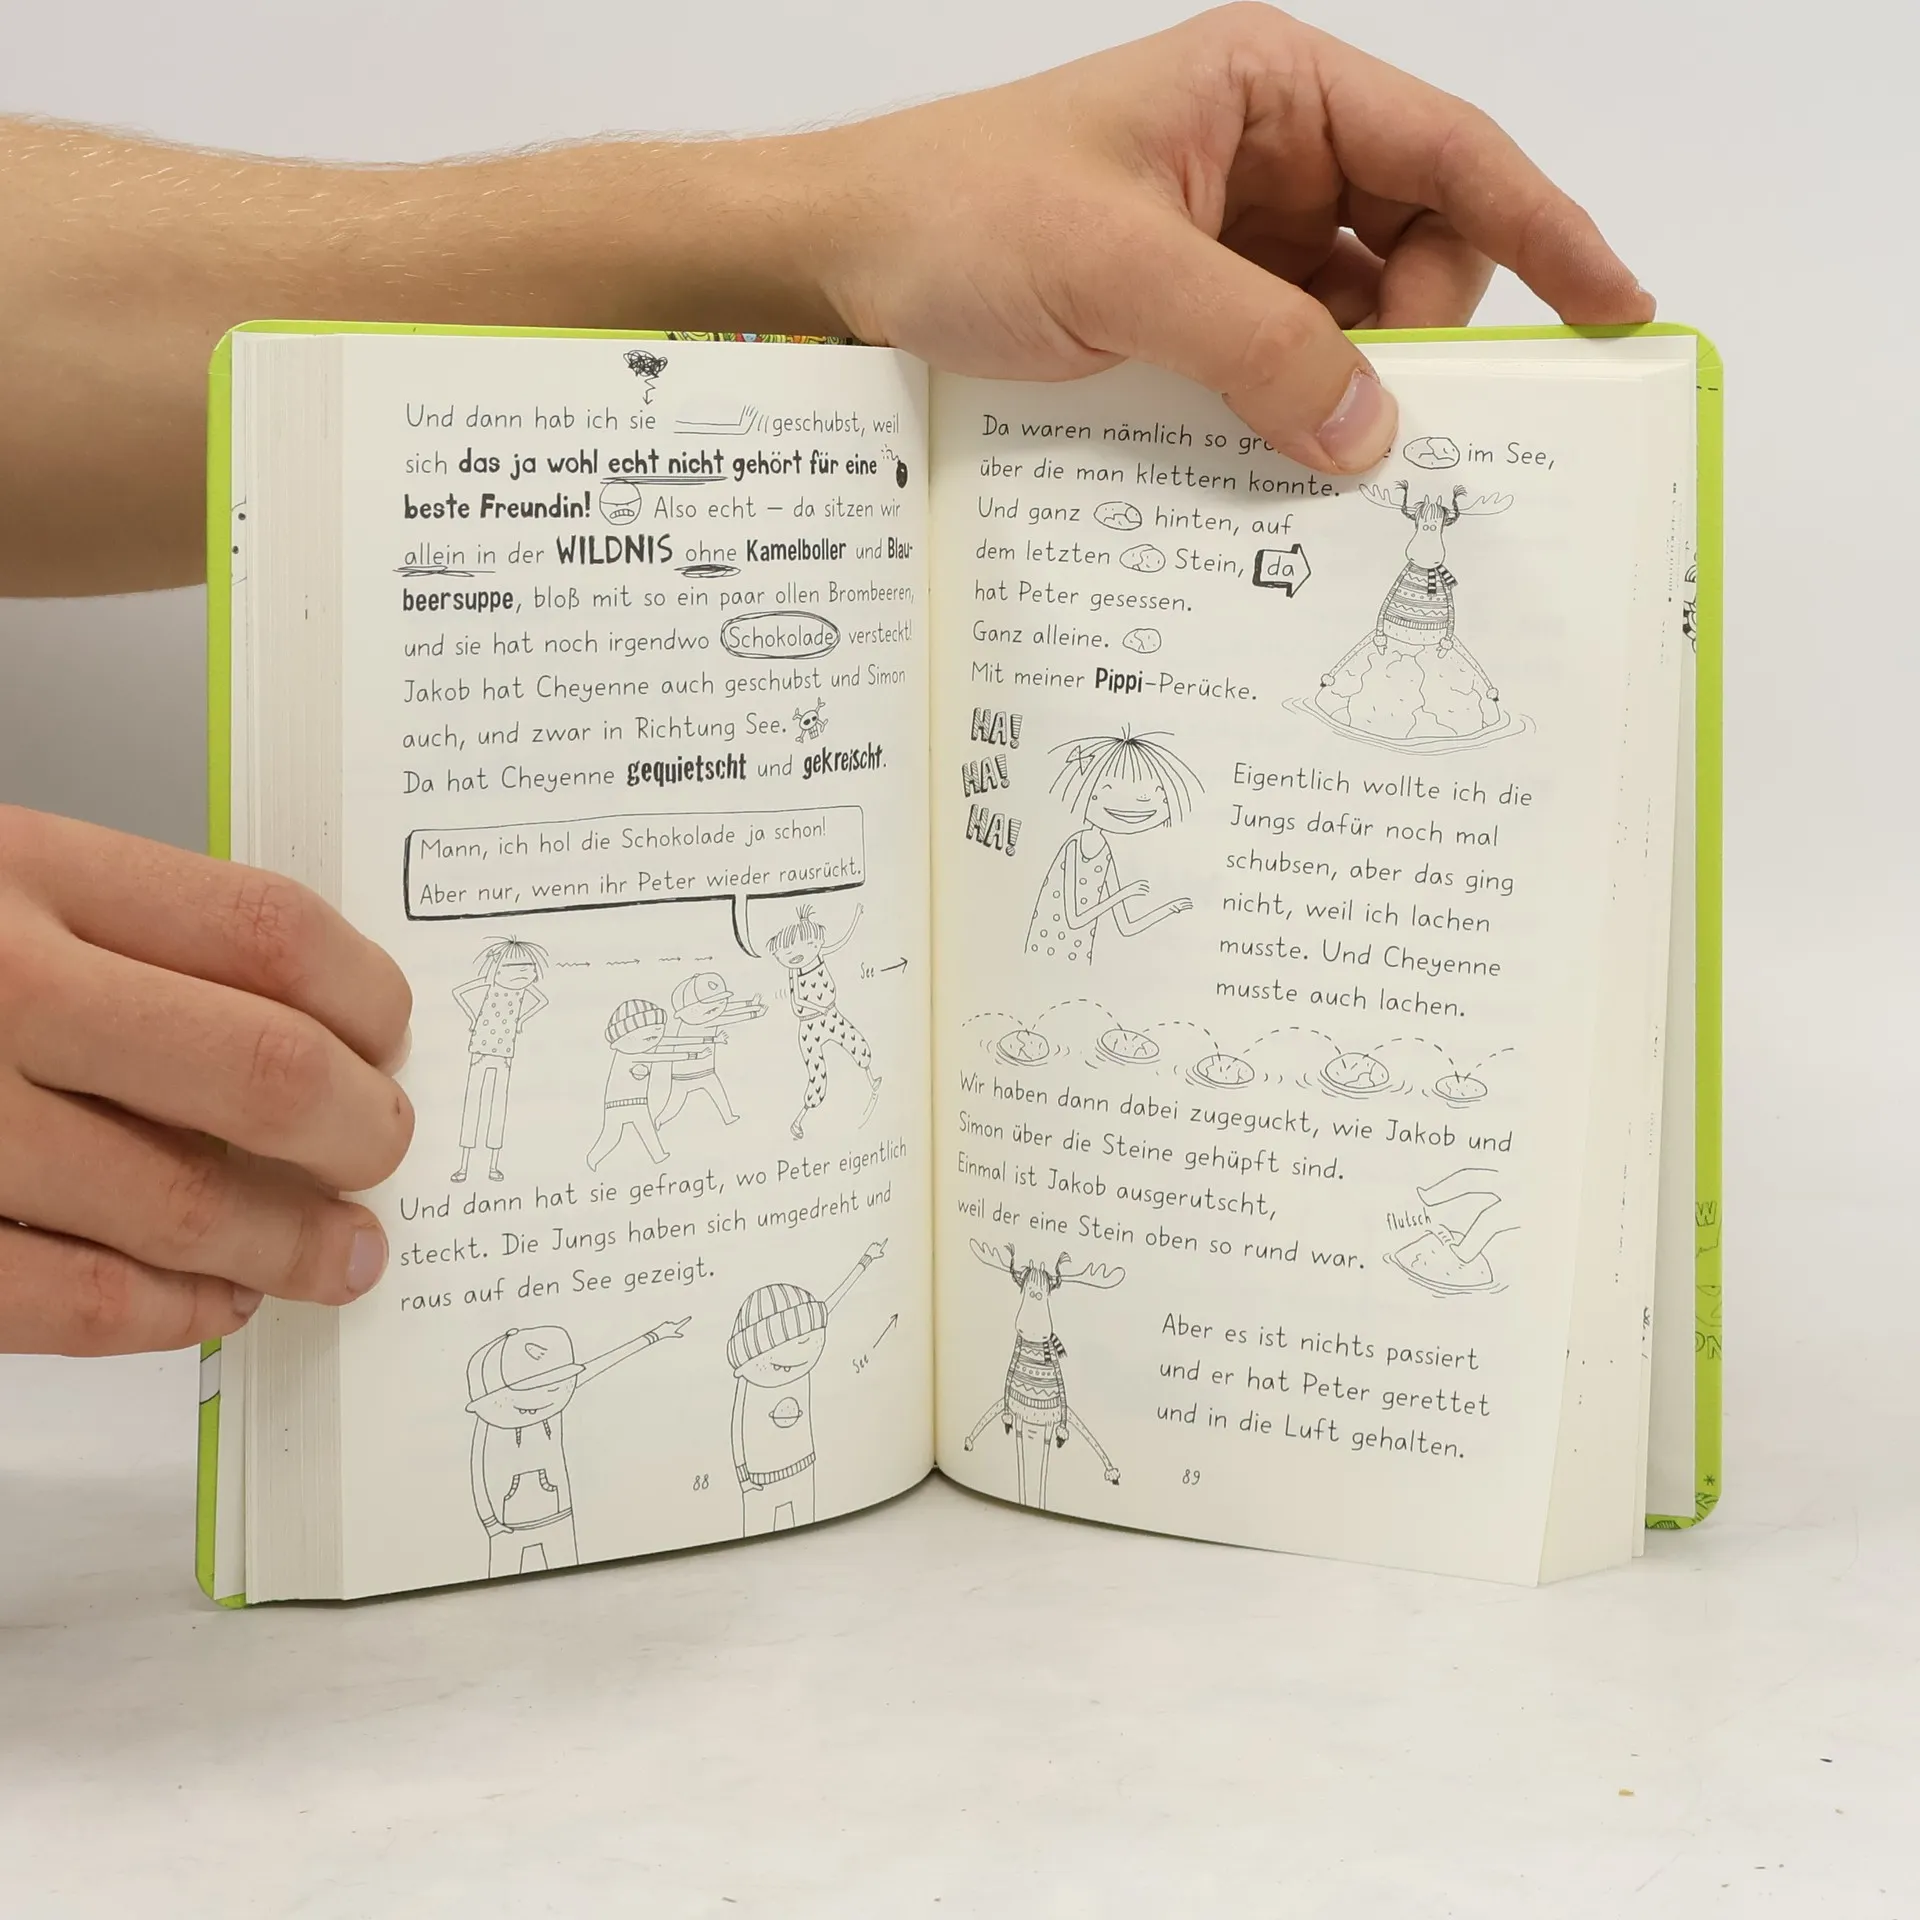 Und dann hab ich sie geschubst, weil
sich das ja wohl echt nicht gehört für eine
beste Freundin! Also echt – da sitzen wir
allein in der WILDNIS ohne Kamelboller und Blau-
beersuppe, bloß mit so ein paar ollen Brombeeren,
und sie hat noch irgendwo Schokolade versteckt!
Jakob hat Cheyenne auch geschubst und Simon
auch, und zwar in Richtung See.
Da hat Cheyenne gequietscht und gekreischt.
Mann, ich hol die Schokolade ja schon!
Aber nur, wenn ihr Peter wieder rausrückt.
See
Und dann hat sie gefragt, wo Peter eigentlich
steckt. Die Jungs haben sich umgedreht und
raus auf den See gezeigt.
See
88
Da waren nämlich so im See,
über die man klettern konnte.
Und ganz hinten, auf
dem letzten Stein, da
hat Peter gesessen.
Ganz alleine.
Mit meiner Pippi-Perücke.
HA!
HA!
HA!
Eigentlich wollte ich die
Jungs dafür noch mal
schubsen, aber das ging
nicht, weil ich lachen
musste. Und Cheyenne
musste auch lachen.
Wir haben dann dabei zugeguckt, wie Jakob und
Simon über die Steine gehüpft sind.
Einmal ist Jakob ausgerutscht,
weil der eine Stein oben so rund war.
flutsch
Aber es ist nichts passiert
und er hat Peter gerettet
und in die Luft gehalten.
89